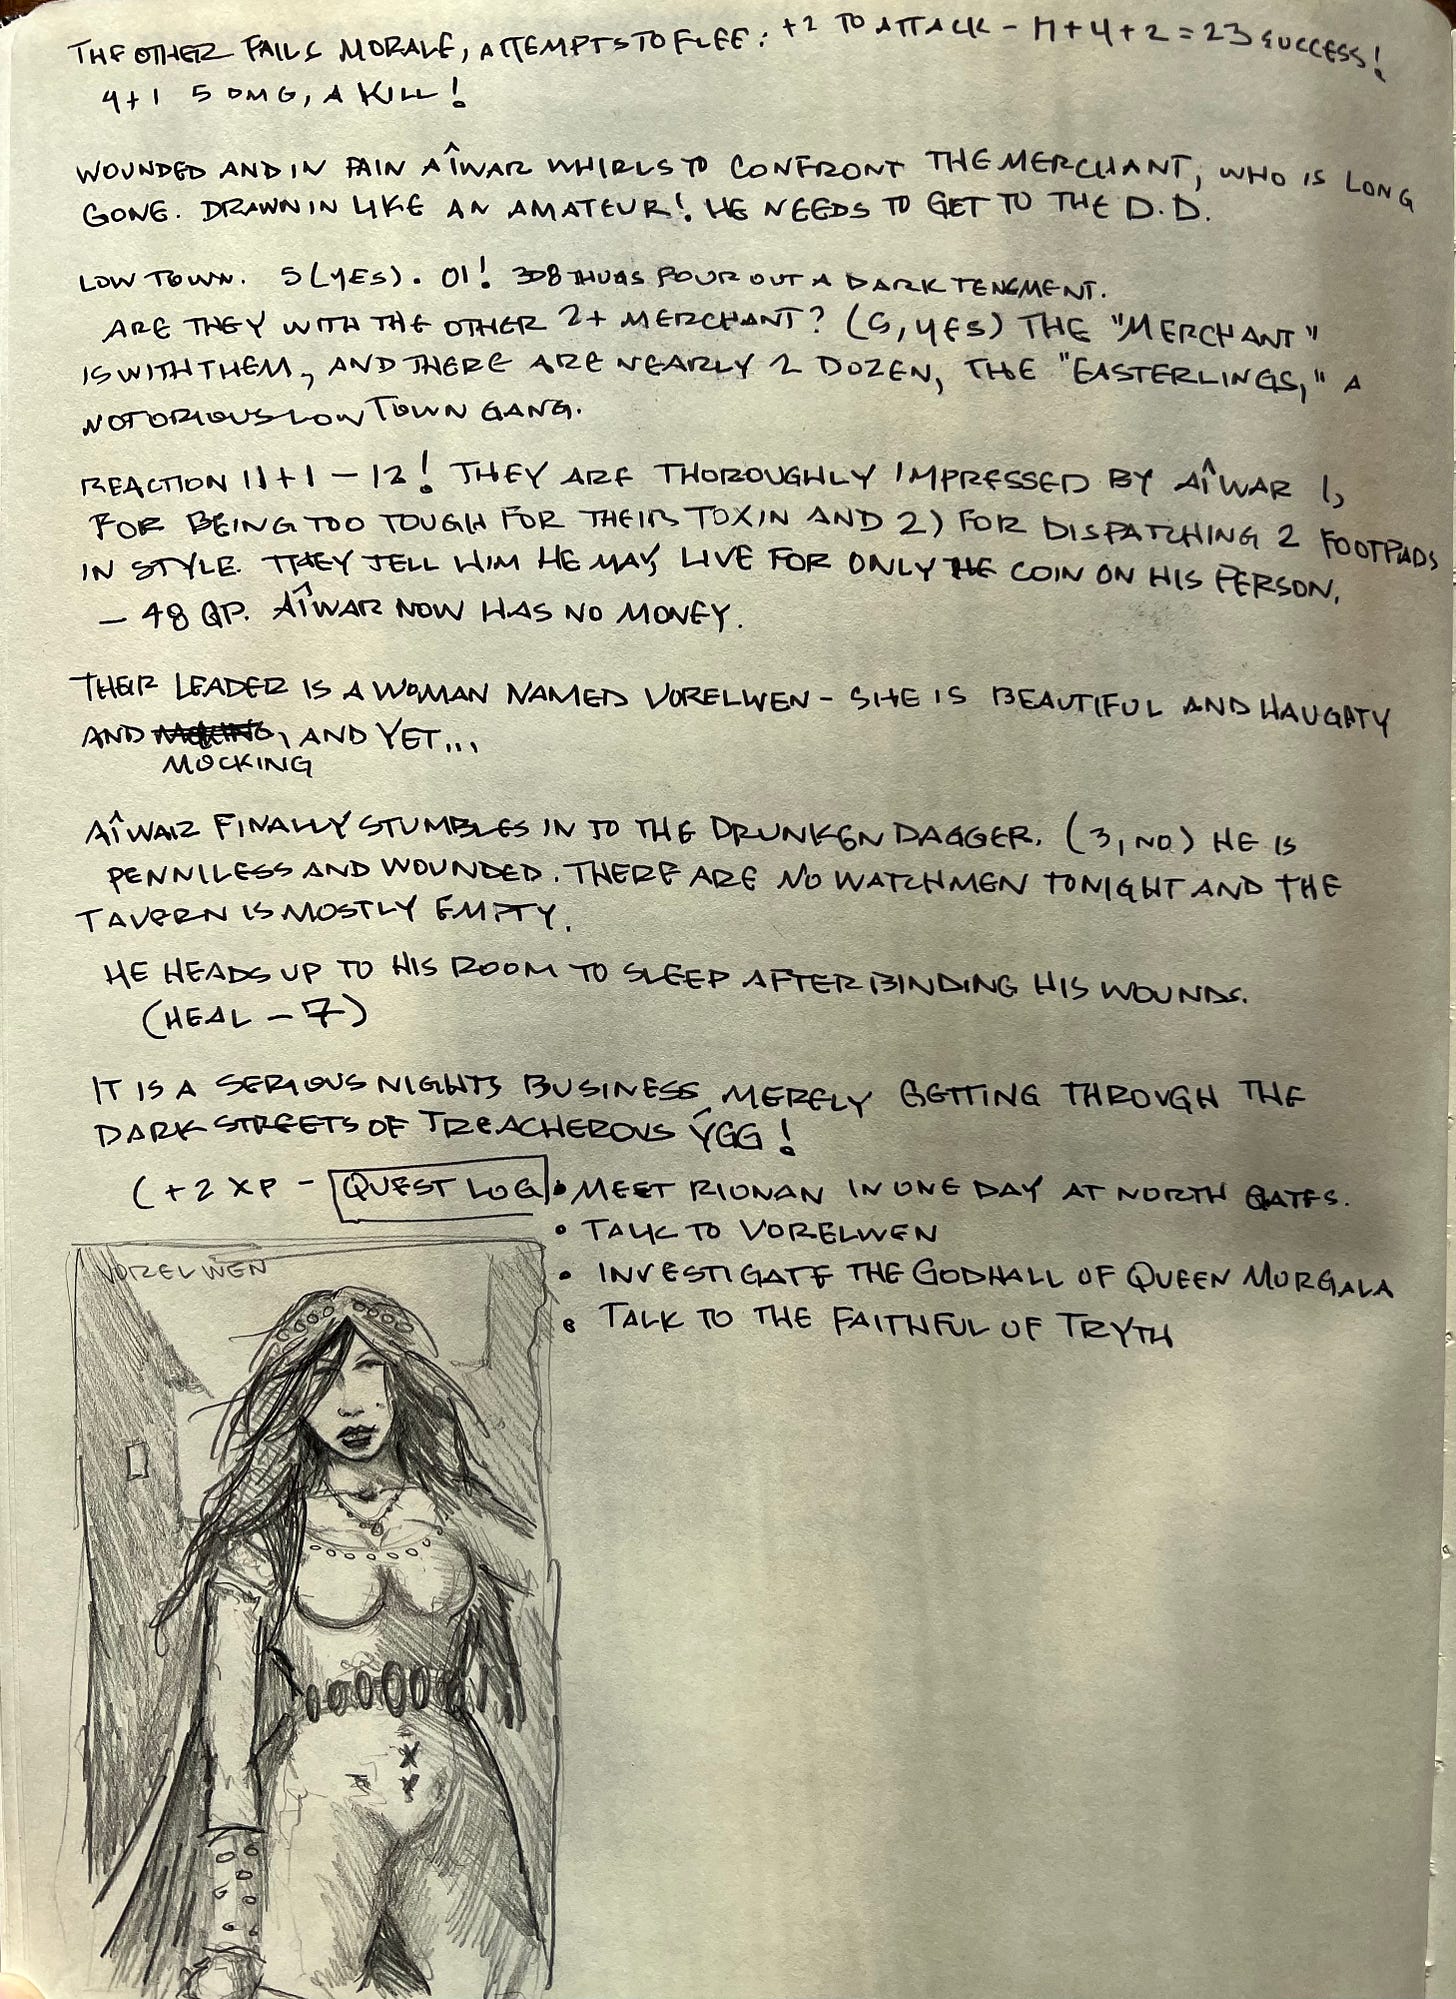 THE OTHER FAILS MORALE, ATTEMPTS TO FLEE: +2 TO ATTACK - 17+4+2=23 SUCCESS!
4+1 5 DMG, A KILL!
WOUNDED AND IN PAIN AÎWAR WHIRLS TO CONFRONT THE MERCHANT, WHO IS LONG
GONE. DRAWN IN LIKE AN AMATEUR! HE NEEDS TO GET TO THE D.D.
LOW TOWN. 5 (YES). OI! THUGS POUR OUT A DARK TENEMENT.
ARE THEY WITH THE OTHER 2 + MERCHANT? (5, YES) THE "MERCHANT"
IS WITH THEM, AND THERE ARE NEARLY 2 DOZEN, THE "EASTERLINGS," A
NOTORIOUS LOW TOWN GANG.
REACTION 11+1 - 12! THEY ARE THOROUGHLY IMPRESSED BY AÎWAR 1)
FOR BEING TOO TOUGH FOR THEIR TOXIN AND 2) FOR DISPATCHING 2 FOOTPADS
IN STYLE. THEY TELL HIM HE MAY LIVE FOR ONLY THE COIN ON HIS PERSON,
- 48 GP. AÎWAR NOW HAS NO MONEY.
THEIR LEADER IS A WOMAN NAMED VORELWEN - SHE IS BEAUTIFUL AND HAUGHTY
AND MOCKING, AND YET...
MOCKING
AÎWAR FINALLY STUMBLES IN TO THE DRUNKEN DAGGER. (3, NO) HE IS
PENNILESS AND WOUNDED. THERE ARE NO WATCHMEN TONIGHT AND THE
TAVERN IS MOSTLY EMPTY.
HE HEADS UP TO HIS ROOM TO SLEEP AFTER BINDING HIS WOUNDS.
(HEAL - 7)
IT IS A SERIOUS NIGHTS BUSINESS MERELY GETTING THROUGH THE
DARK STREETS OF TREACHEROUS ÝGG!
(+2 XP - QUEST LOG • MEET RIONAN IN ONE DAY AT NORTH GATES.
• TALK TO VORELWEN
• INVESTIGATE THE GODHALL OF QUEEN MORGALA
• TALK TO THE FAITHFUL OF TRYTH
VORELWEN